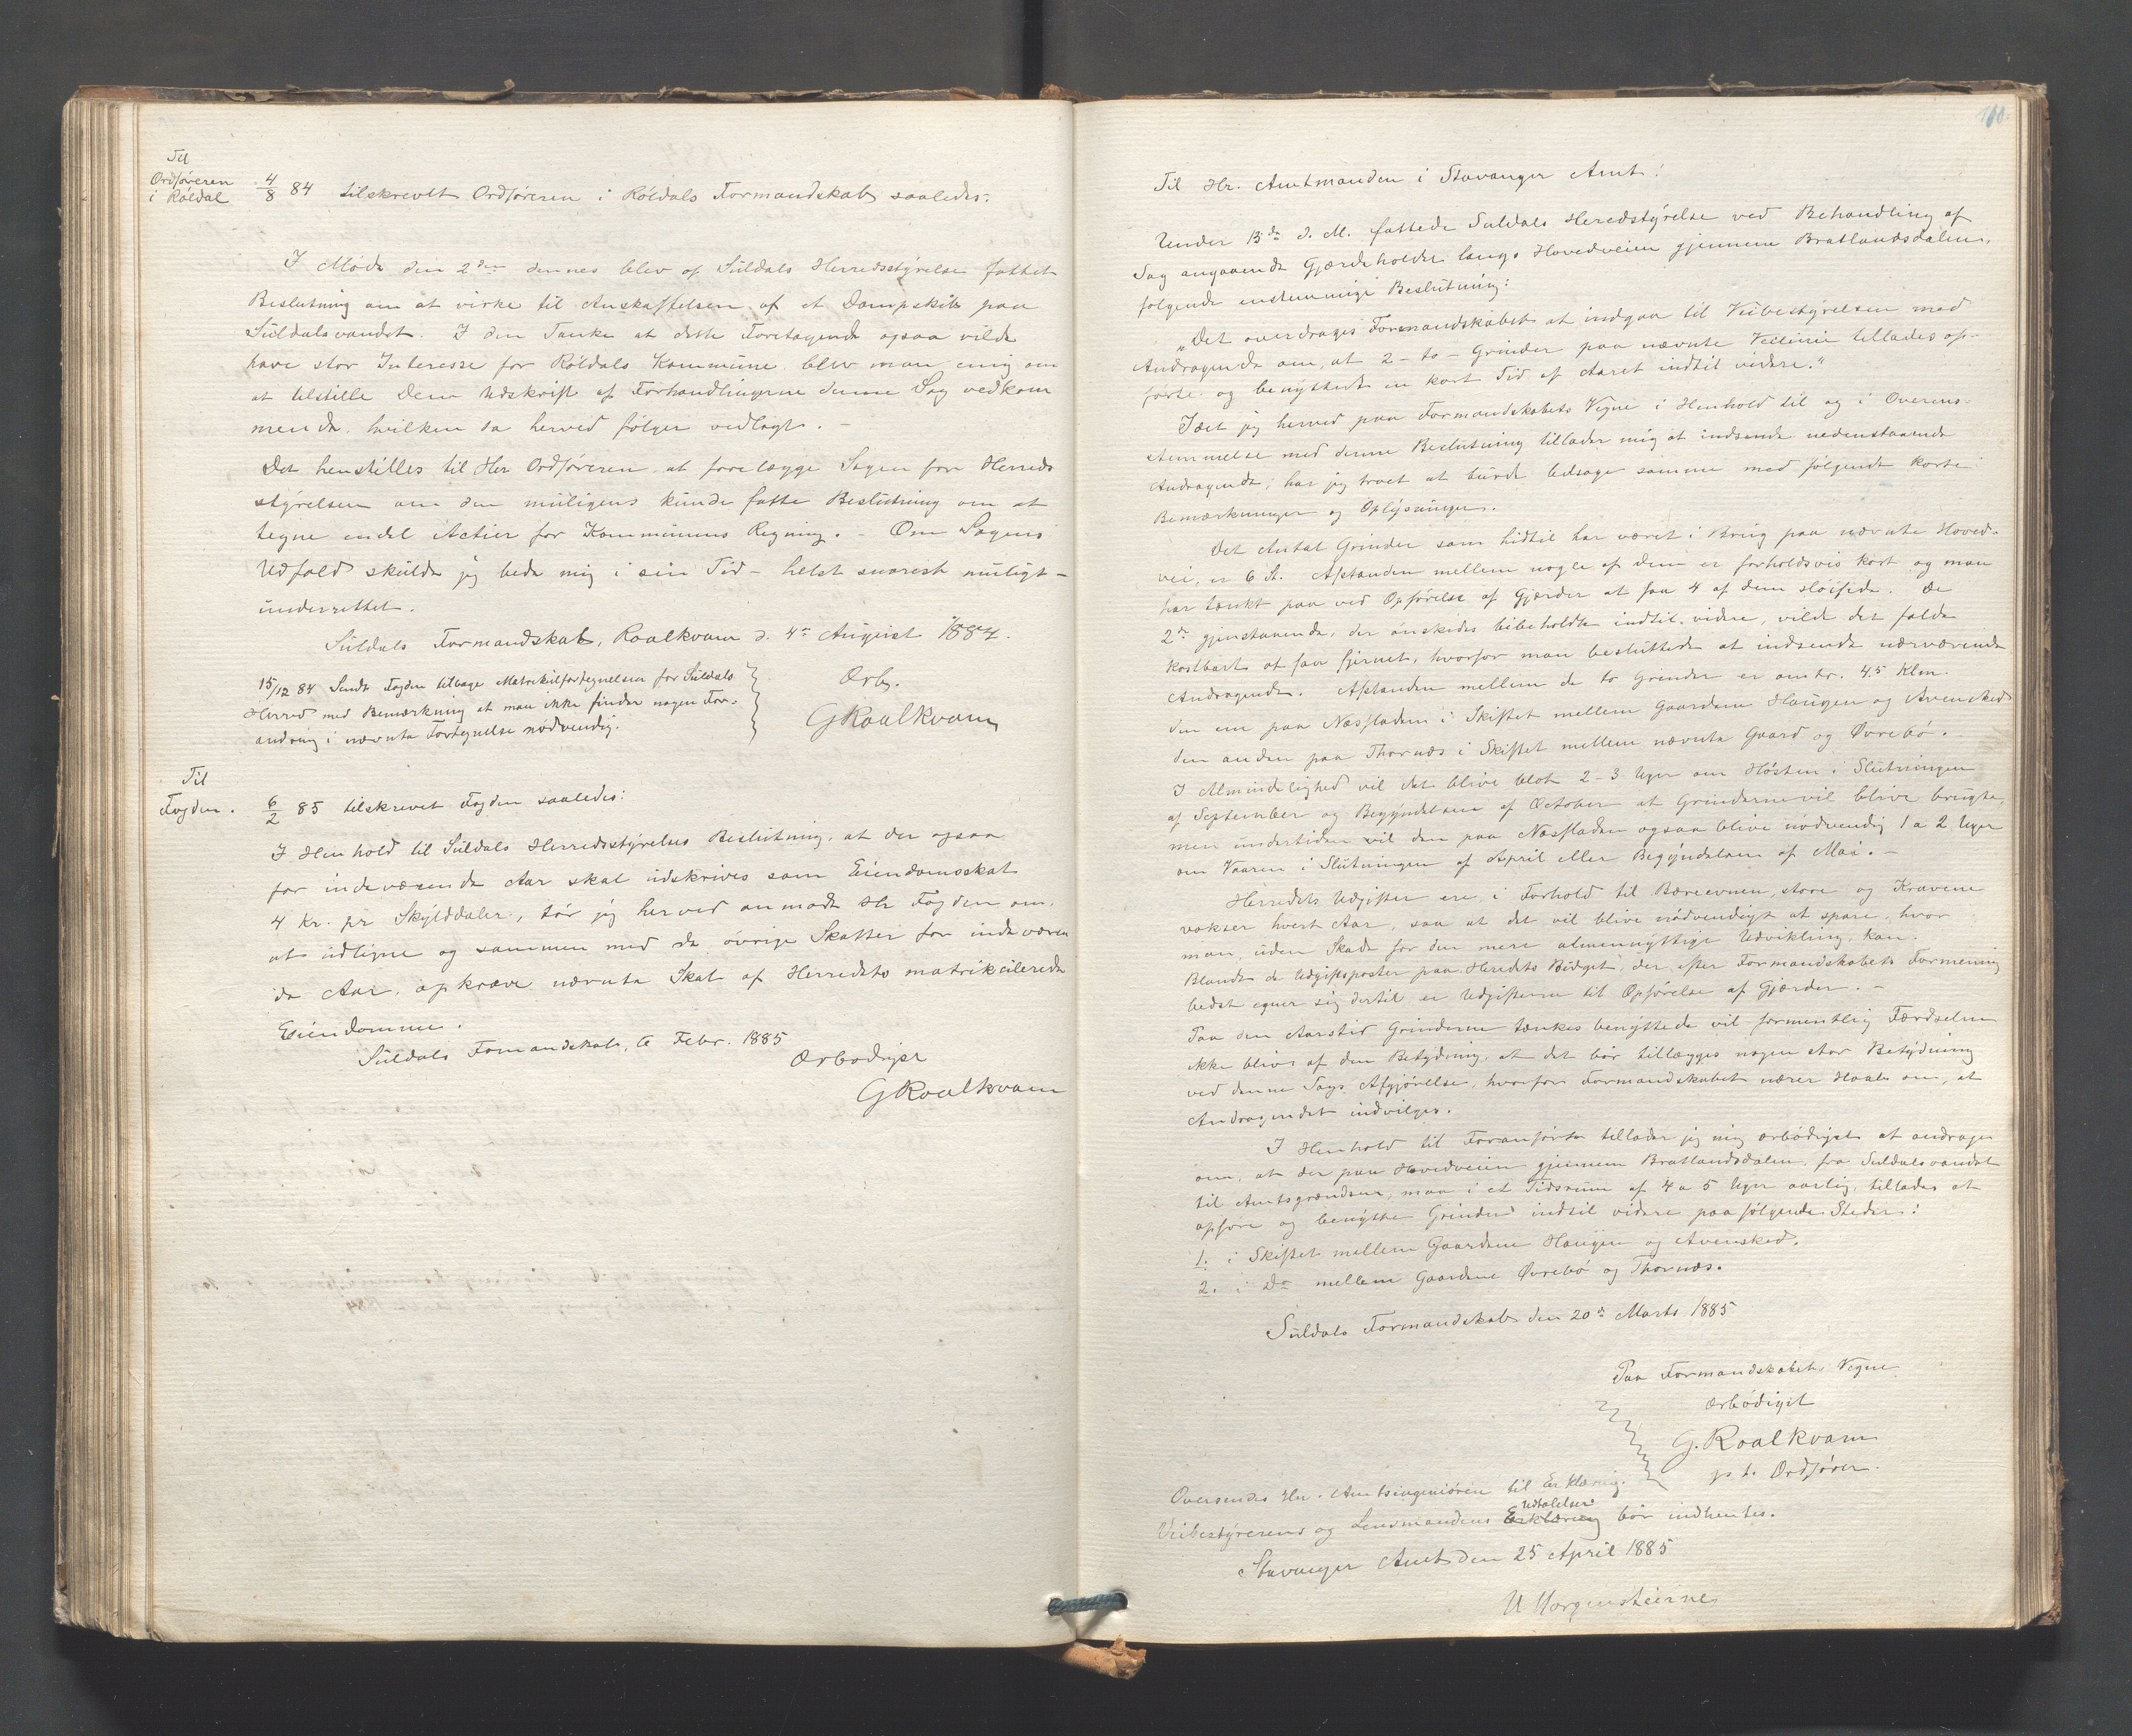 Til
Ordføreren
i Røldal
4/8 84 tilskrevet Ordføreren i Røldals Formandskab saaledes:
I Møde den 2den dennes blev af Suldals Herredsstyrelse fattet
Beslutning om at virke til Anskaffelsen af et Dampskib paa
Suldalsvandet. I den Tanke at dette Foretagende ogsaa vilde
have stor Interesse for Røldals Kommune blev man enig om
at tilstille Dem Udskrift af Forhandlingerne denne Sag vedkom
mende, hvilken da herved følger vedlagt. -
Det henstilles til Hr Ordføreren at forelægge Sagen for Herreds
styrelsen om den muligens kunde fatte Beslutning om at
tegne endel Actier for Kommunens Regning. - Om Sagens
Udfald skulde jeg bede mig i sin Tid - helst snarest muligt -
underrettet.
Suldals Formandskab, Roalkvam d. 4de August 1884.
Ærb.
GRoalkvam
15/12 84 Sendt Fogden tilbage Matrikulfortegnelsen for Suldals
Herred med Bemærkning at man ikke finder nogen For-
andring i nævnte Fortegnelse nødvendig.
Til
Fogden.
6/2 85 tilskrevet Fogden saaledes:
I Henhold til Suldals Herredsstyrelses Beslutning, at der ogsaa
for indeværende Aar skal udskrives som Eiendomsskat
4 Kr. pr Skylddaler, tør jeg herved anmode Hr Fogden om
at udligne og sammen med de øvrige Skatter for indeværen
de Aar, opkræve nævnte Skat af Herredets matrikulerede
Eiendomme.
Suldals Formandskab, 6 Febr. 1885
Ærbødigst
GRoalkvam
Til Hr. Amtmanden i Stavanger Amt!
Under 13de d. M. fattede Suldals Heredstyrelse ved Behandling af
Sag angaaende Gjærdeholdet langs Hovedveien gjennem Bratlandsdalen,
følgende enstemmige Beslutning:
"Det overdrages Formandskabet at indgaa til Veibestyrelsen med
Andragende om, at 2 - to - Grinder paa nævnte Veilinie tillades op-
førte og benyttede en kort Tid af Aaret indtil videre."
Idet jeg herved paa Formandskabets Vegne i Henhold til og i Overens-
stemmelse med denne Beslutning tillader mig at indsende nedenstaaende
Andragende, har jeg troet at burde ledsage samme med følgende korte
Bemærkninger og Oplysninger.
Det Antal Grinder som hidtil har været i Brug paa nævnte Hoved-
vei, er 6 St. Afstanden mellem nogle af dem er forholdsvis kort og man
har tænkt paa ved Opførelse af Gjærder at faa 4 af dem sløifede. De
2de gjenstaaende, der ønskedes bibeholdte indtil videre, vilde det falde
kostbart at faa fjernet, hvorfor man besluttede at indsende nærværende
Andragende. Afstanden mellem de to Grinder er omtr. 4.5 Klm.
den ene paa Næsfladen i Skiftet mellem Gaardene Haugen og Avensked
den anden paa Thornæs i Skiftet mellem nævnte Gaard og Øvrebø.
I Almindelighed vil det blive blot 2-3 Uger om Høsten i Slutningen
af September og Begyndelsen af October at Grinderne vil blive brugte,
men undertiden vil den paa Næsfladen ogsaa blive nødvendig 1 a 2 Uger
om Vaaren i Slutningen af April eller Begyndelsen af Mai. -
Herredets Udgifter ere, i Forhold til Bæreevnen, store og Kravene
vokser hvert Aar, saa at det vil blive nødvendigt at spare, hvor
man, uden Skade for den mere almennyttige Udvikling, kan.
Blandt de Udgiftsposter paa Heredets Budget, der, efter Formandskabets Formening
bedst egner sig dertil er Udgifterne til Opførelse af Gjærder. -
Paa den Aarstid Grinderne tænkes benyttede vil formentlig Færdselen
ikke blive af den Betydning, at det bør tillægges nogen stor Betydning
ved denne Sags Afgjørelse, hvorfor Formandskabet nærer Haab om, at
Andragendet indvilges.
I Henhold til Foranførte tillader jeg mig ærbødigst at andrage
om, at der paa Hovedveien gjennem Bratlandsdalen, fra Suldalsvandet
til Amtsgrændsen, maa i et Tidsrum af 4 a 5 Uger aarlig, tillades at
opføre og benytte Grinder indtil videre paa følgende Steder:
1. i Skiftet mellem Gaardene Haugen og Avensked.
2. i Do mellem Gaardene Øvrebø og Thornæs.
Suldals Formandskab den 20de Marts 1885
Paa Formandskabets Vegne
ærbødigst
G. Roalkvam
p. t. Ordfører.
Oversendes Hr. Amtsingeniøren til Erklæring.
Udtalelser
Veibestyrerens og Lensmandens Erklæring bør indhentes.
Stavanger Amt den 25 April 1885
U Morgenstierne